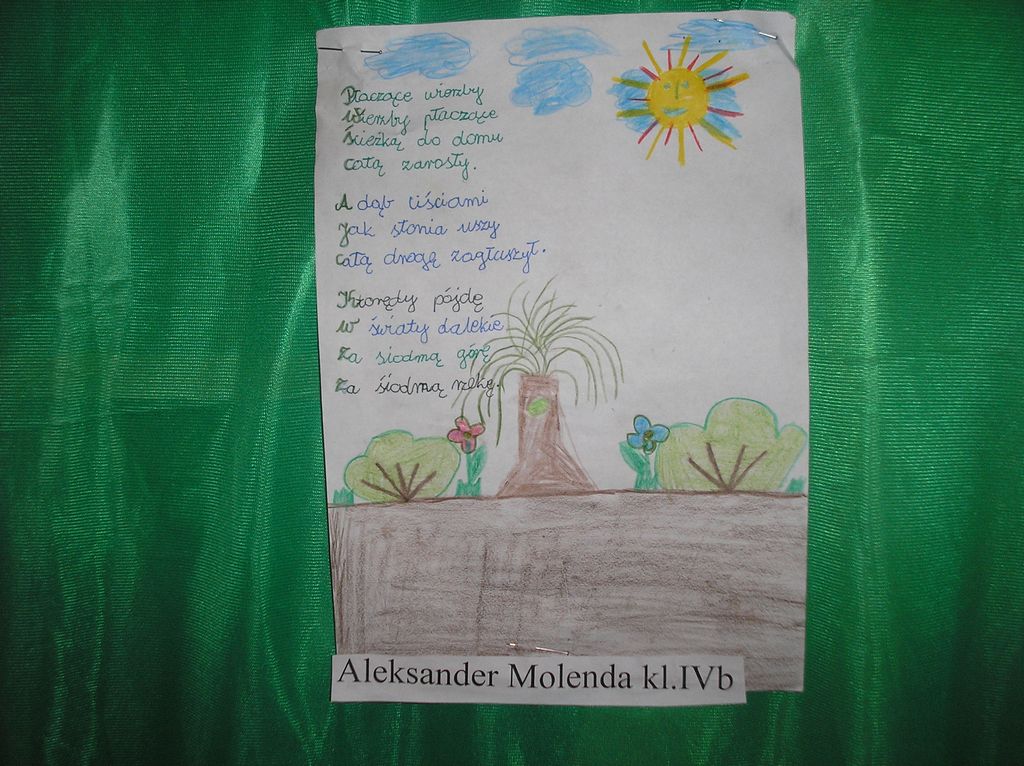 Płaczące wierzby
Wierzby płaczące
Ścieżką do domu
całą zarosły.
A dąb liściami
Jak słonia uszy
całą drogę zagłuszył.
Którędy pójdę
w światy dalekie
Za siódmą górę
Za siódmą rzekę.
Aleksander Molenda kl.IVb